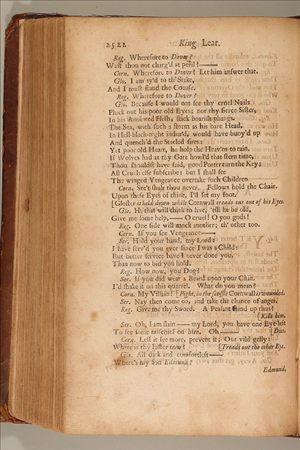 2522 King Lear.
Reg. Wherefore to Dover?
Wast thou not charg'd at peril?——
Corn. Wherefore to Dover? Let him answer that.
Glo. I am ty'd to th' Stake,
And I must stand the Course.
Reg. Wherefore to Dover?
Glo. Because I would not see thy cruel Nails
Pluck out his poor old Eyes; nor thy fierce Sister,
In his Anointed Flesh, stick boarish phangs.
The Sea, with such a storm as his bare Head,
In Hell-black-night indur'd, would have buoy'd up
And quench'd the Stelled fires:
Yet poor old Heart, he holp the Heav'ns to rain.
If Wolves had at thy Gate howl'd that stern time,
Thou should'st have said, good Porter turn the Key;
All Cruels else subscribe: but I shall see
The winged Vengeance overtake such Children.
Corn. See't shalt thou never. Fellows hold the Chair.
Upon these Eyes of thine, I'll set my foot.
[Gloster is held down while Cornwall treads out one of his Eyes.
Glo. He that will think to live, 'till he be old,
Give me some help,—— O cruel! O you gods!
Reg. One side will mock another; th' other too.
Corn. If you see Vengeance——
Ser. Hold your hand, my Lord:
I have serv'd you ever since I was a Child;
But better service have I never done you,
Than now to bid you hold.
Reg. How now, you Dog?
Ser. If you did wear a Beard upon your Chin,
I'd shake it on this quarrel. What do you mean?
Corn. My Villain! [Fight, in the scuffle Cornwall is wounded.
Ser. Nay then come on, and take the chance of anger.
Reg. Give me thy Sword. A Peasant stand up thus?
[Kills him.
Ser. Oh, I am slain—— my Lord, you have one Eye left
To see some mischief on him. Oh——
Corn. Lest it see more, prevent it; Out vild gelly:
Where is thy luster now? [Treads out the other Eye.
Glo. All dark and comfortless——
Where's my Son Edmund?
Edmund,